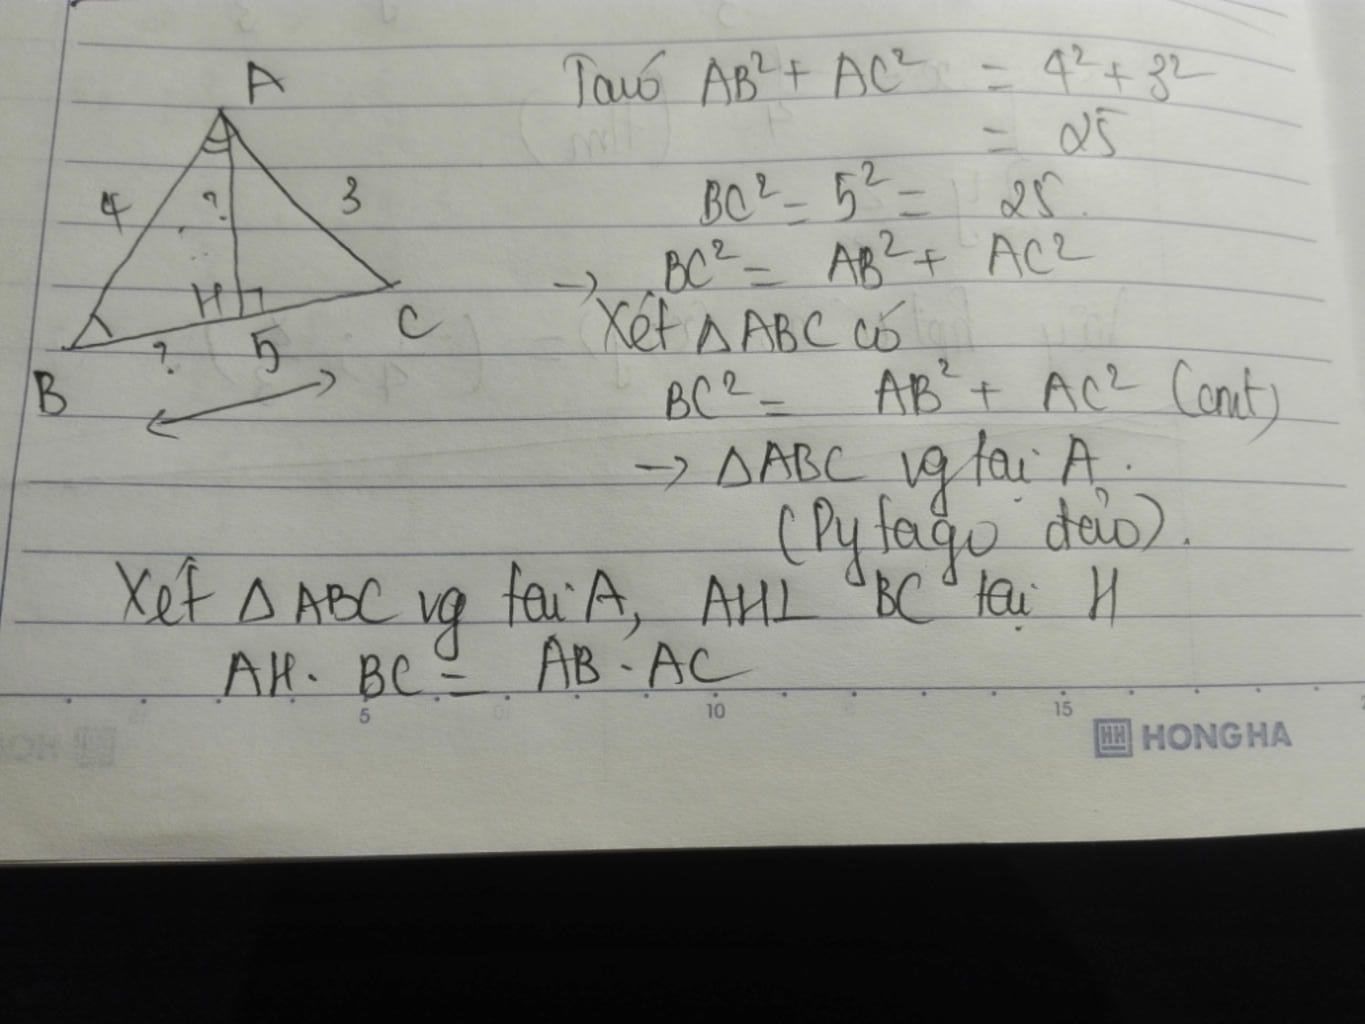 A
4
?
3
H
C
B
?
5
Ta có AB² + AC² = 4² + 3²
= 25
BC² = 5² = 25.
→ BC² = AB² + AC²
Xét △ABC có
BC² = AB² + AC² (cmt)
→ △ABC vg tại A.
(Pytago đảo).
Xét △ABC vg tại A, AH⊥ BC tại H
AH. BC = AB . AC
5 10 15
HH HONG HA